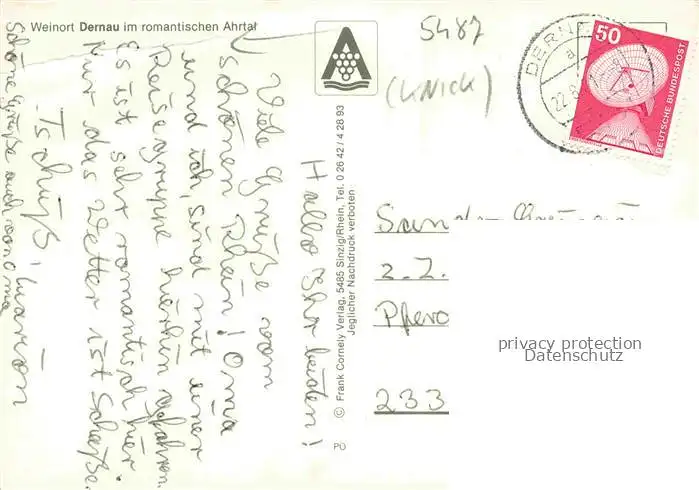 Weinort Dernau im romantischen Ahrtal
5487
(KNICK)
DERNAU
a
22.8.
50
DEUTSCHE BUNDESPOST
Hallo Ihr beiden!
Viele Grüße vom
schönen Rhein! Oma
und ich, sind mit einer
Reisegruppe hierhin gefahren.
Es ist sehr romantisch hier.
Nur das Wetter ist Scheiße.
Tschüß, Marion
Schöne Grüße auch von Oma
© Frank Cornely Verlag, 5485 Sinzig/Rhein, Tel. 0 26 42 / 4 28 93
Jeglicher Nachdruck verboten
PÜ
z.Z.
233
privacy protection
Datenschutz